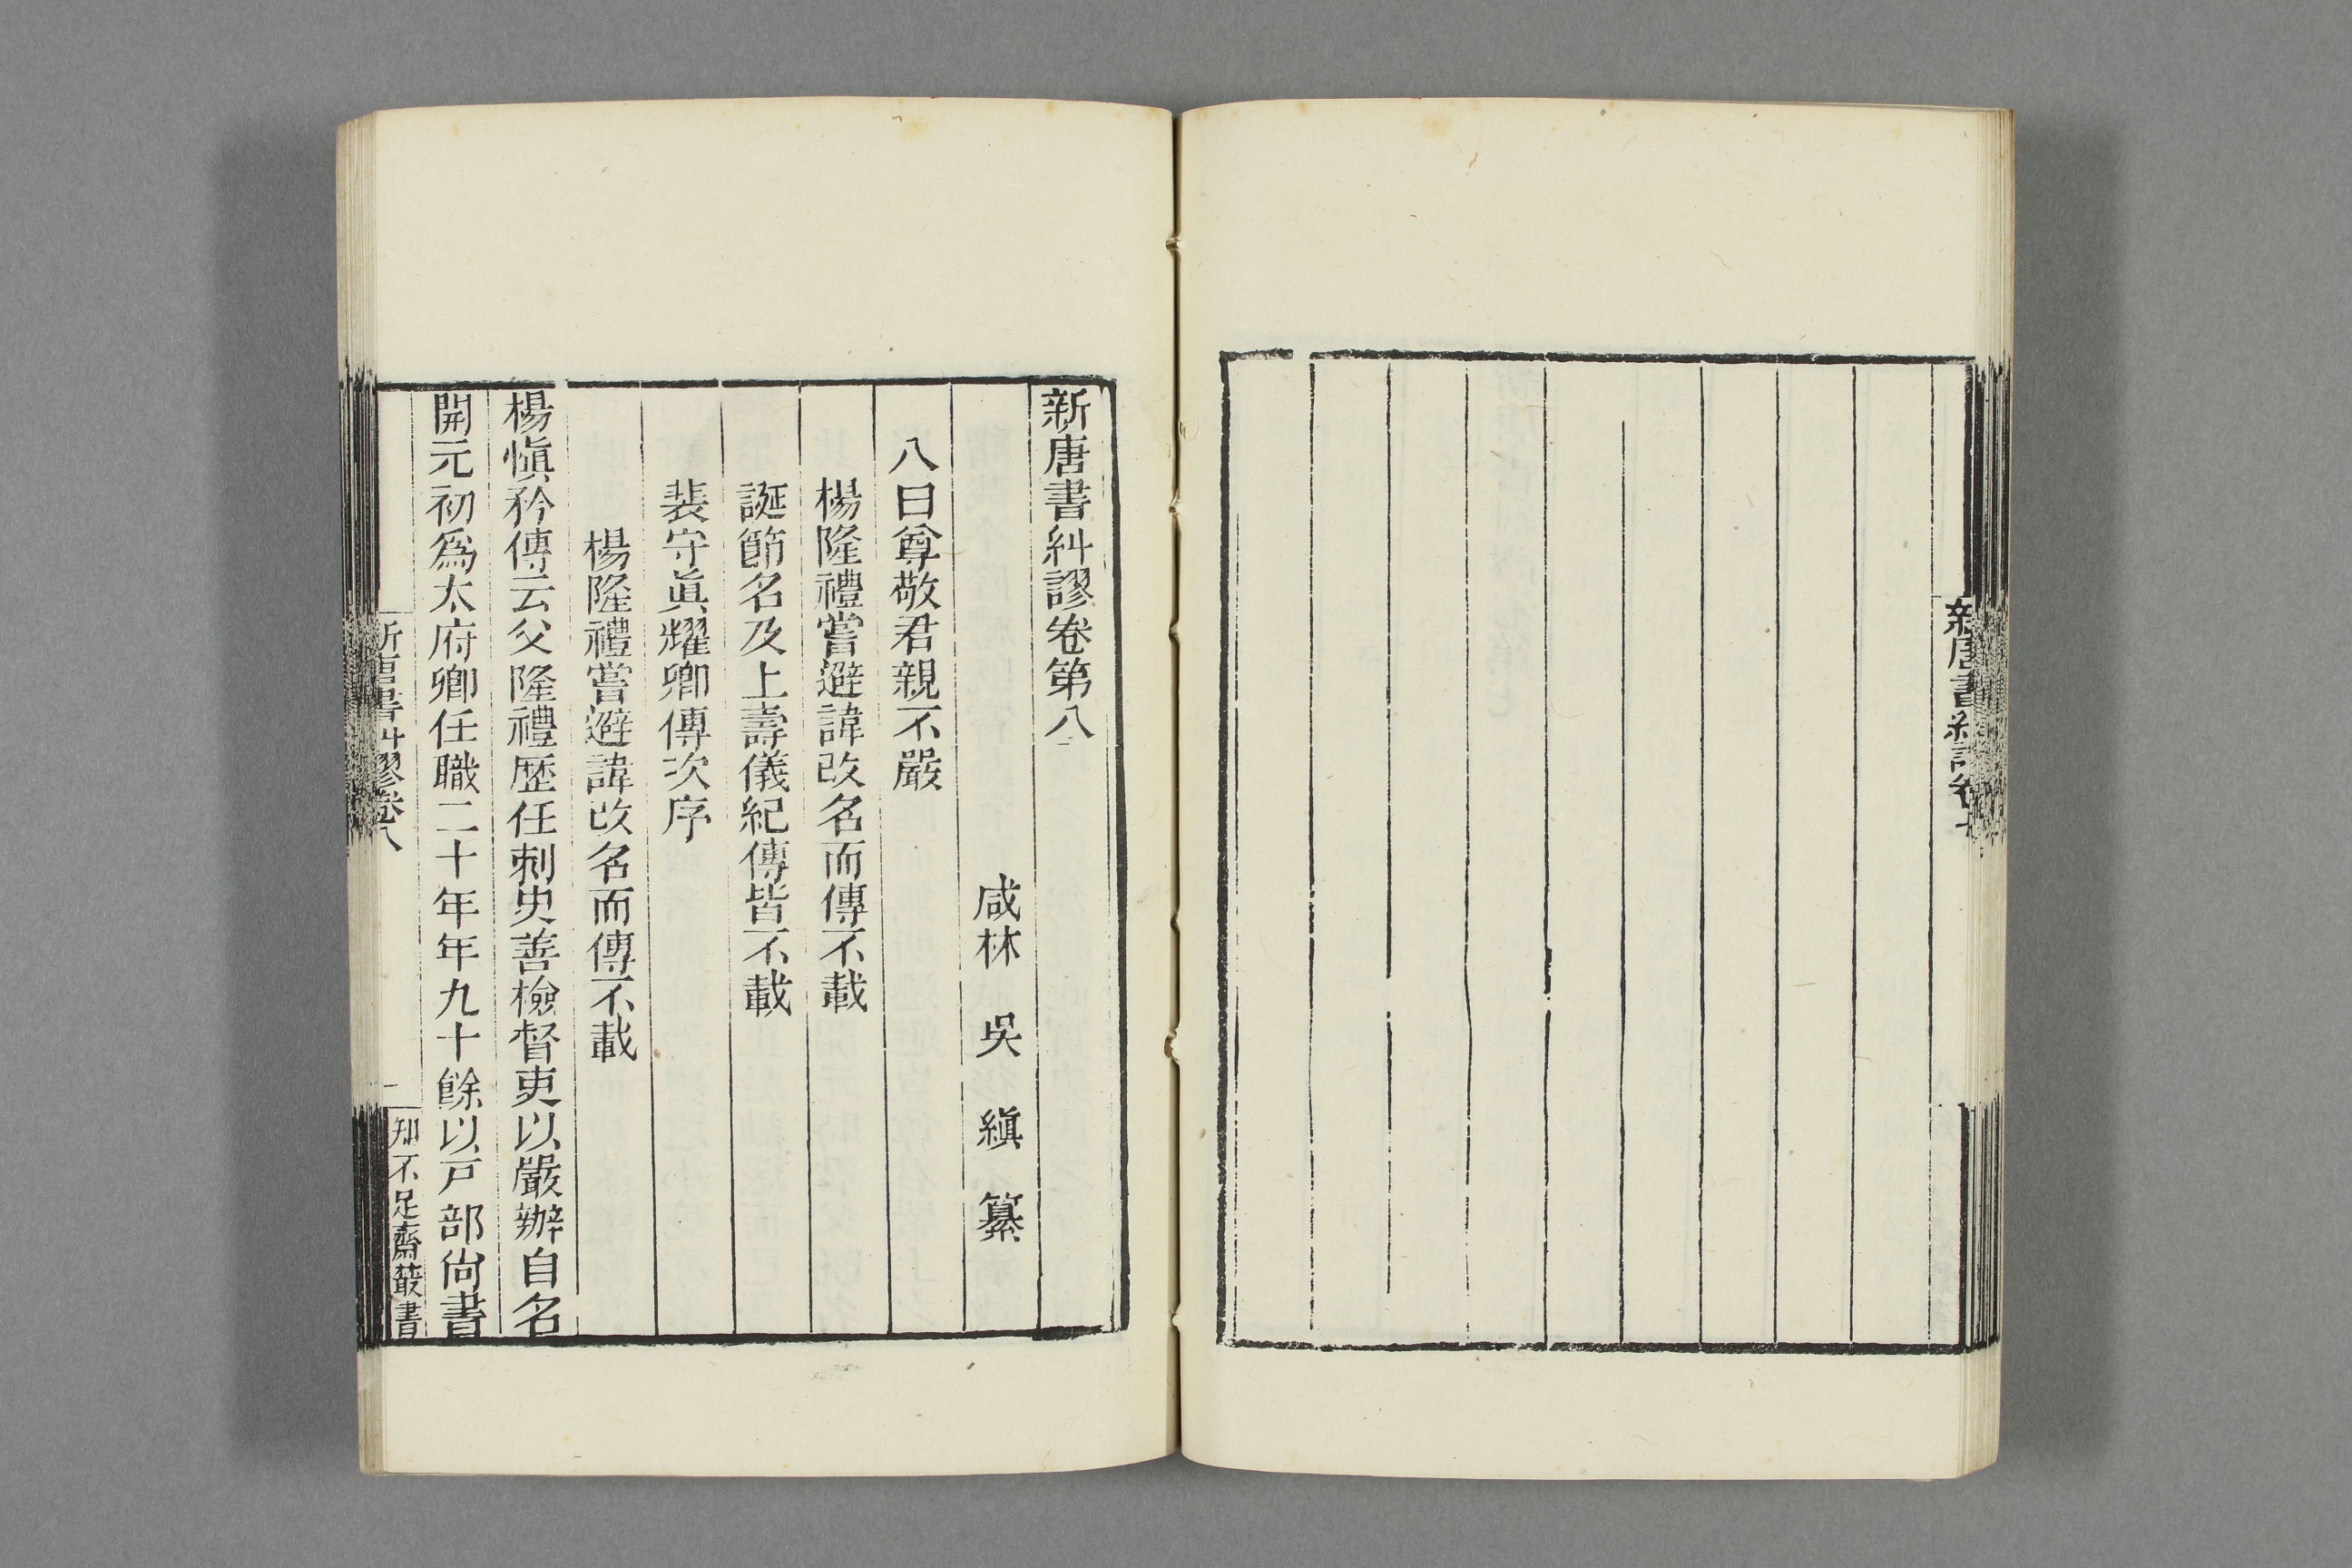 新唐書糾謬卷七
新唐書糾謬卷第八
咸林 吳 縝 纂
八曰尊敬君親不嚴
楊隆禮嘗避諱改名而傳不載
誕節名及上壽儀紀傳皆不載
裴守眞耀卿傳次序
楊隆禮嘗避諱改名而傳不載
楊愼矜傳云父隆禮歷任刺史善檢督吏以嚴辦自名
開元初爲太府卿任職二十年年九十餘以戸部尙書
新唐書糾謬卷八
一
知不足齋叢書